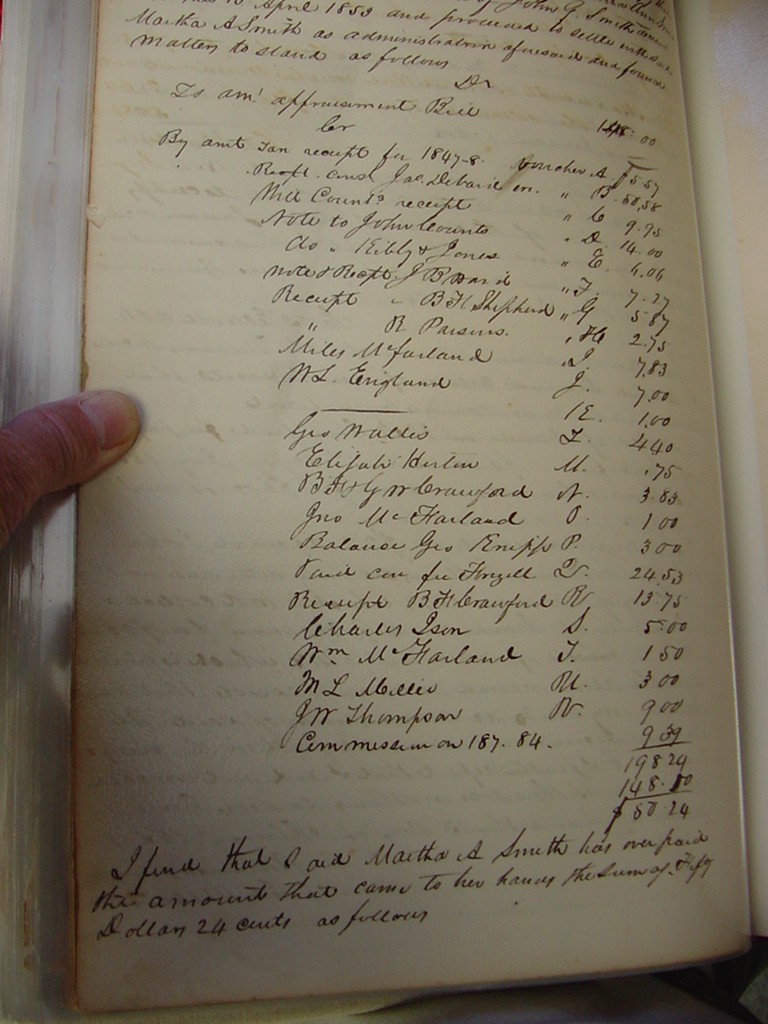 10 April 1853 and proceeded to settle with
Martha A Smith as administratrix aforesaid and found
matters to stand as follows
Dr
To amt appraisement Bill 148.00
Cr
By amt Tax receipt for 1847-8. Voucher A. $5.57
Recpt. const Jac. Debard in. " B. 50,58
Receipt " C 9.95
Note to John Counts " D. 14.00
do " Kibby & Jones " E.
Note & Recpt. J B Ward " F. 7.27
Receipt " B F Shepherd " G 5.87
" R Parsons. " H 2.75
Miles McFarland I 7.83
W L. England J. 7.00
K. 1.00
Geo Wallis L. 4 40
Elijah Horton M. .75
B F & G W Crawford N. 3.83
Jno McFarland O. 1 00
Balance Geo Knipp P. 3 00
Paid cou fee Frizell Q. 24.53
Receipt B F Crawford R 13.75
Charles Ison S. 5.00
Wm McFarland T. 1 50
M L Miller U. 3 00
J W Thompson V. 9 00
Commission on 187.84. 9 39
198 24
148.00
$50.24
I find that said Martha A Smith has over paid
the amount that came to her hands the sum of Fifty
Dollars 24 cents as follows